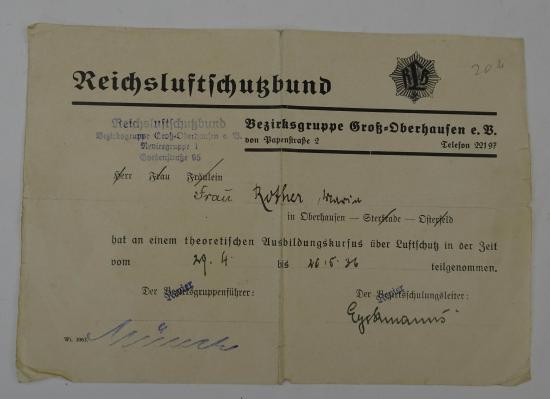 20 h
RLB
Reichsluftschutzbund
Reichsluftschutzbund
Bezirksgruppe Groß-Oberhausen e. V.
Reviergruppe 1
Goebenstraße 95
Bezirksgruppe Groß-Oberhausen e. V.
von Papenstraße 2 Telefon 22197
Herr Frau Fräulein
Frau Rother, Maria
in Oberhausen — Sterkrade — Osterfeld
hat an einem theoretischen Ausbildungskursus über Luftschutz in der Zeit
vom 29. 4. bis 26. 5. 36 teilgenommen.
Revier Revier
Der Bezirksgruppenführer: Der Bezirksschulungsleiter:
Eyckmanns